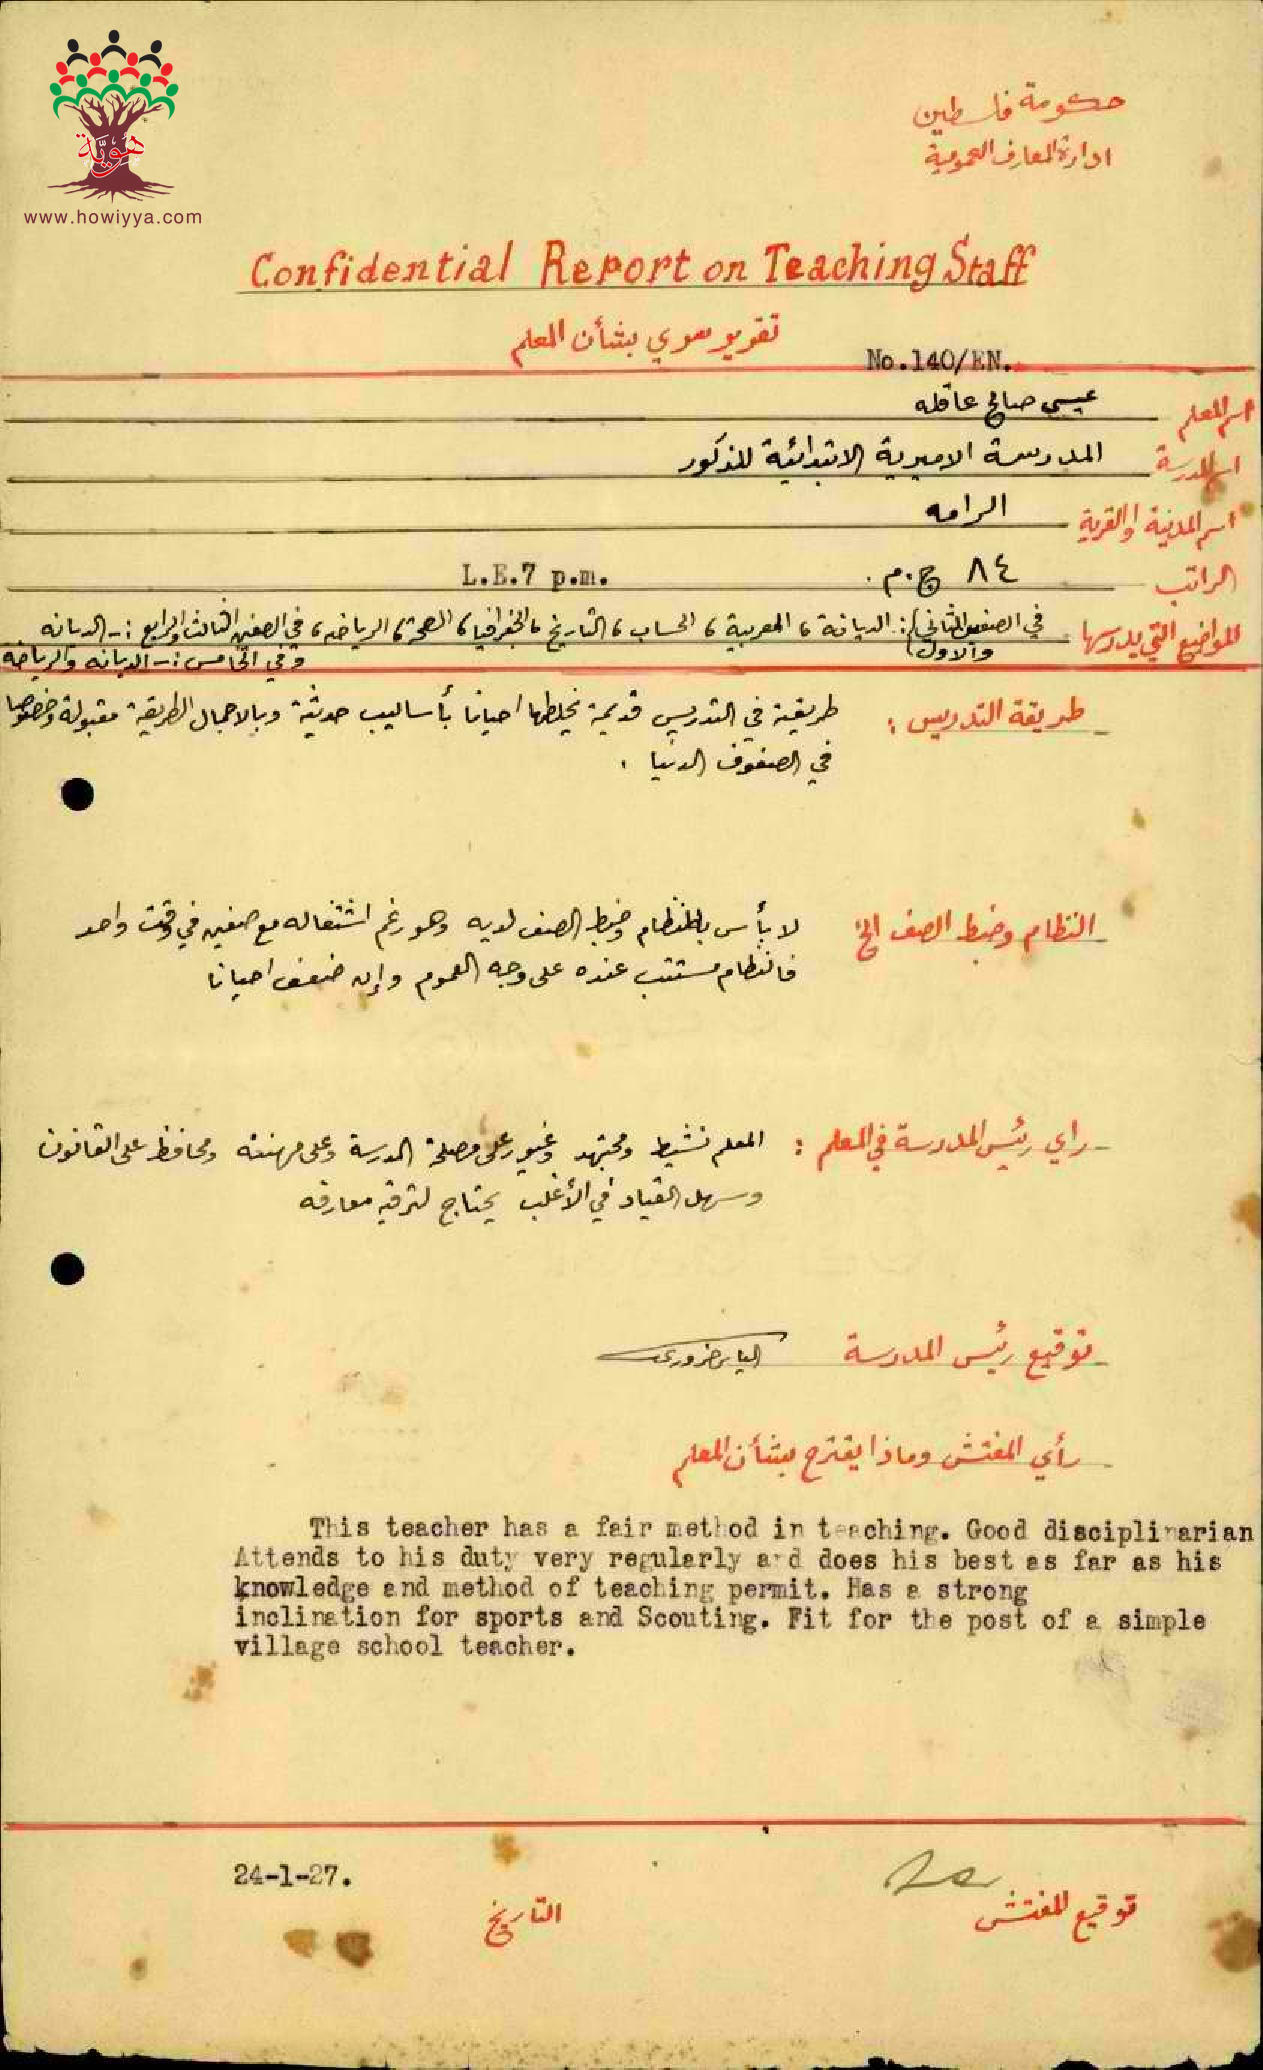 هوية
www.howiyya.com
حكومة فلسطين
ادارة المعارف العمومية
Confidential Report on Teaching Staff
تقرير سري بشأن المعلم
No.140/EN.
اسم المعلم عيسى صالح عاقله
اسم المدرسة المدرسة الاميرية الابتدائية للذكور
اسم المدينة او القرية الرامه
الراتب ٨٤ ج.م. L.E.7 p.m.
المواضيع التي يدرسها في الصفين الثاني والاول: الديانة، العربية، الحساب، التاريخ، الجغرافيا، الصحة، الرياضه، في الصفين الثالث والرابع :- الديانه
وفي الخامس :- الديانه والرياضه
طريقة التدريس : طريقته في التدريس قديمة يخلطها احيانا بأساليب حديثة وبالاجمال الطريقة مقبولة وخصوصا
في الصفوف الدنيا .
النظام وضبط الصف الخ لا بأس بالنظام وضبط الصف لديه وهو رغم اشتغاله مع صفين في وقت واحد
فالنظام مستتب عنده على وجه العموم وإن ضعف احيانا
راي رئيس المدرسة في المعلم : المعلم نشيط ومجتهد وغيور على مصلحة المدرسة وعلى مهنته ومحافظ على القانون
وسهل القياد في الأغلب يحتاج لترقية معارفه
توقيع رئيس المدرسة الياس
رأي المفتش وماذا يقترح بشأن المعلم
This teacher has a fair method in teaching. Good disciplinarian
Attends to his duty very regularly and does his best as far as his
knowledge and method of teaching permit. Has a strong
inclination for sports and Scouting. Fit for the post of a simple
village school teacher.
24-1-27.
توقيع المفتش التاريخ